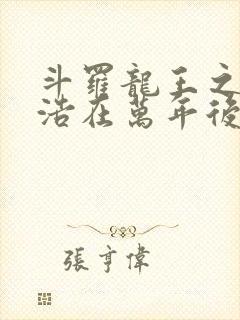 斗羅龍王之
浩在萬年後
張亨偉